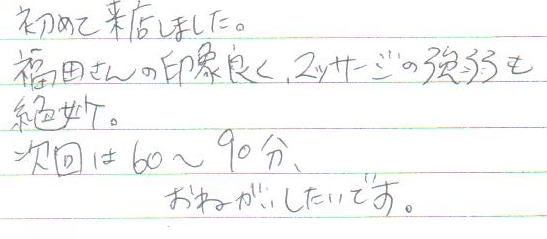 初めて来店しました。
福田さんの印象良く、マッサージの強弱も
絶妙。
次回は60〜90分、
おねがいしたいです。